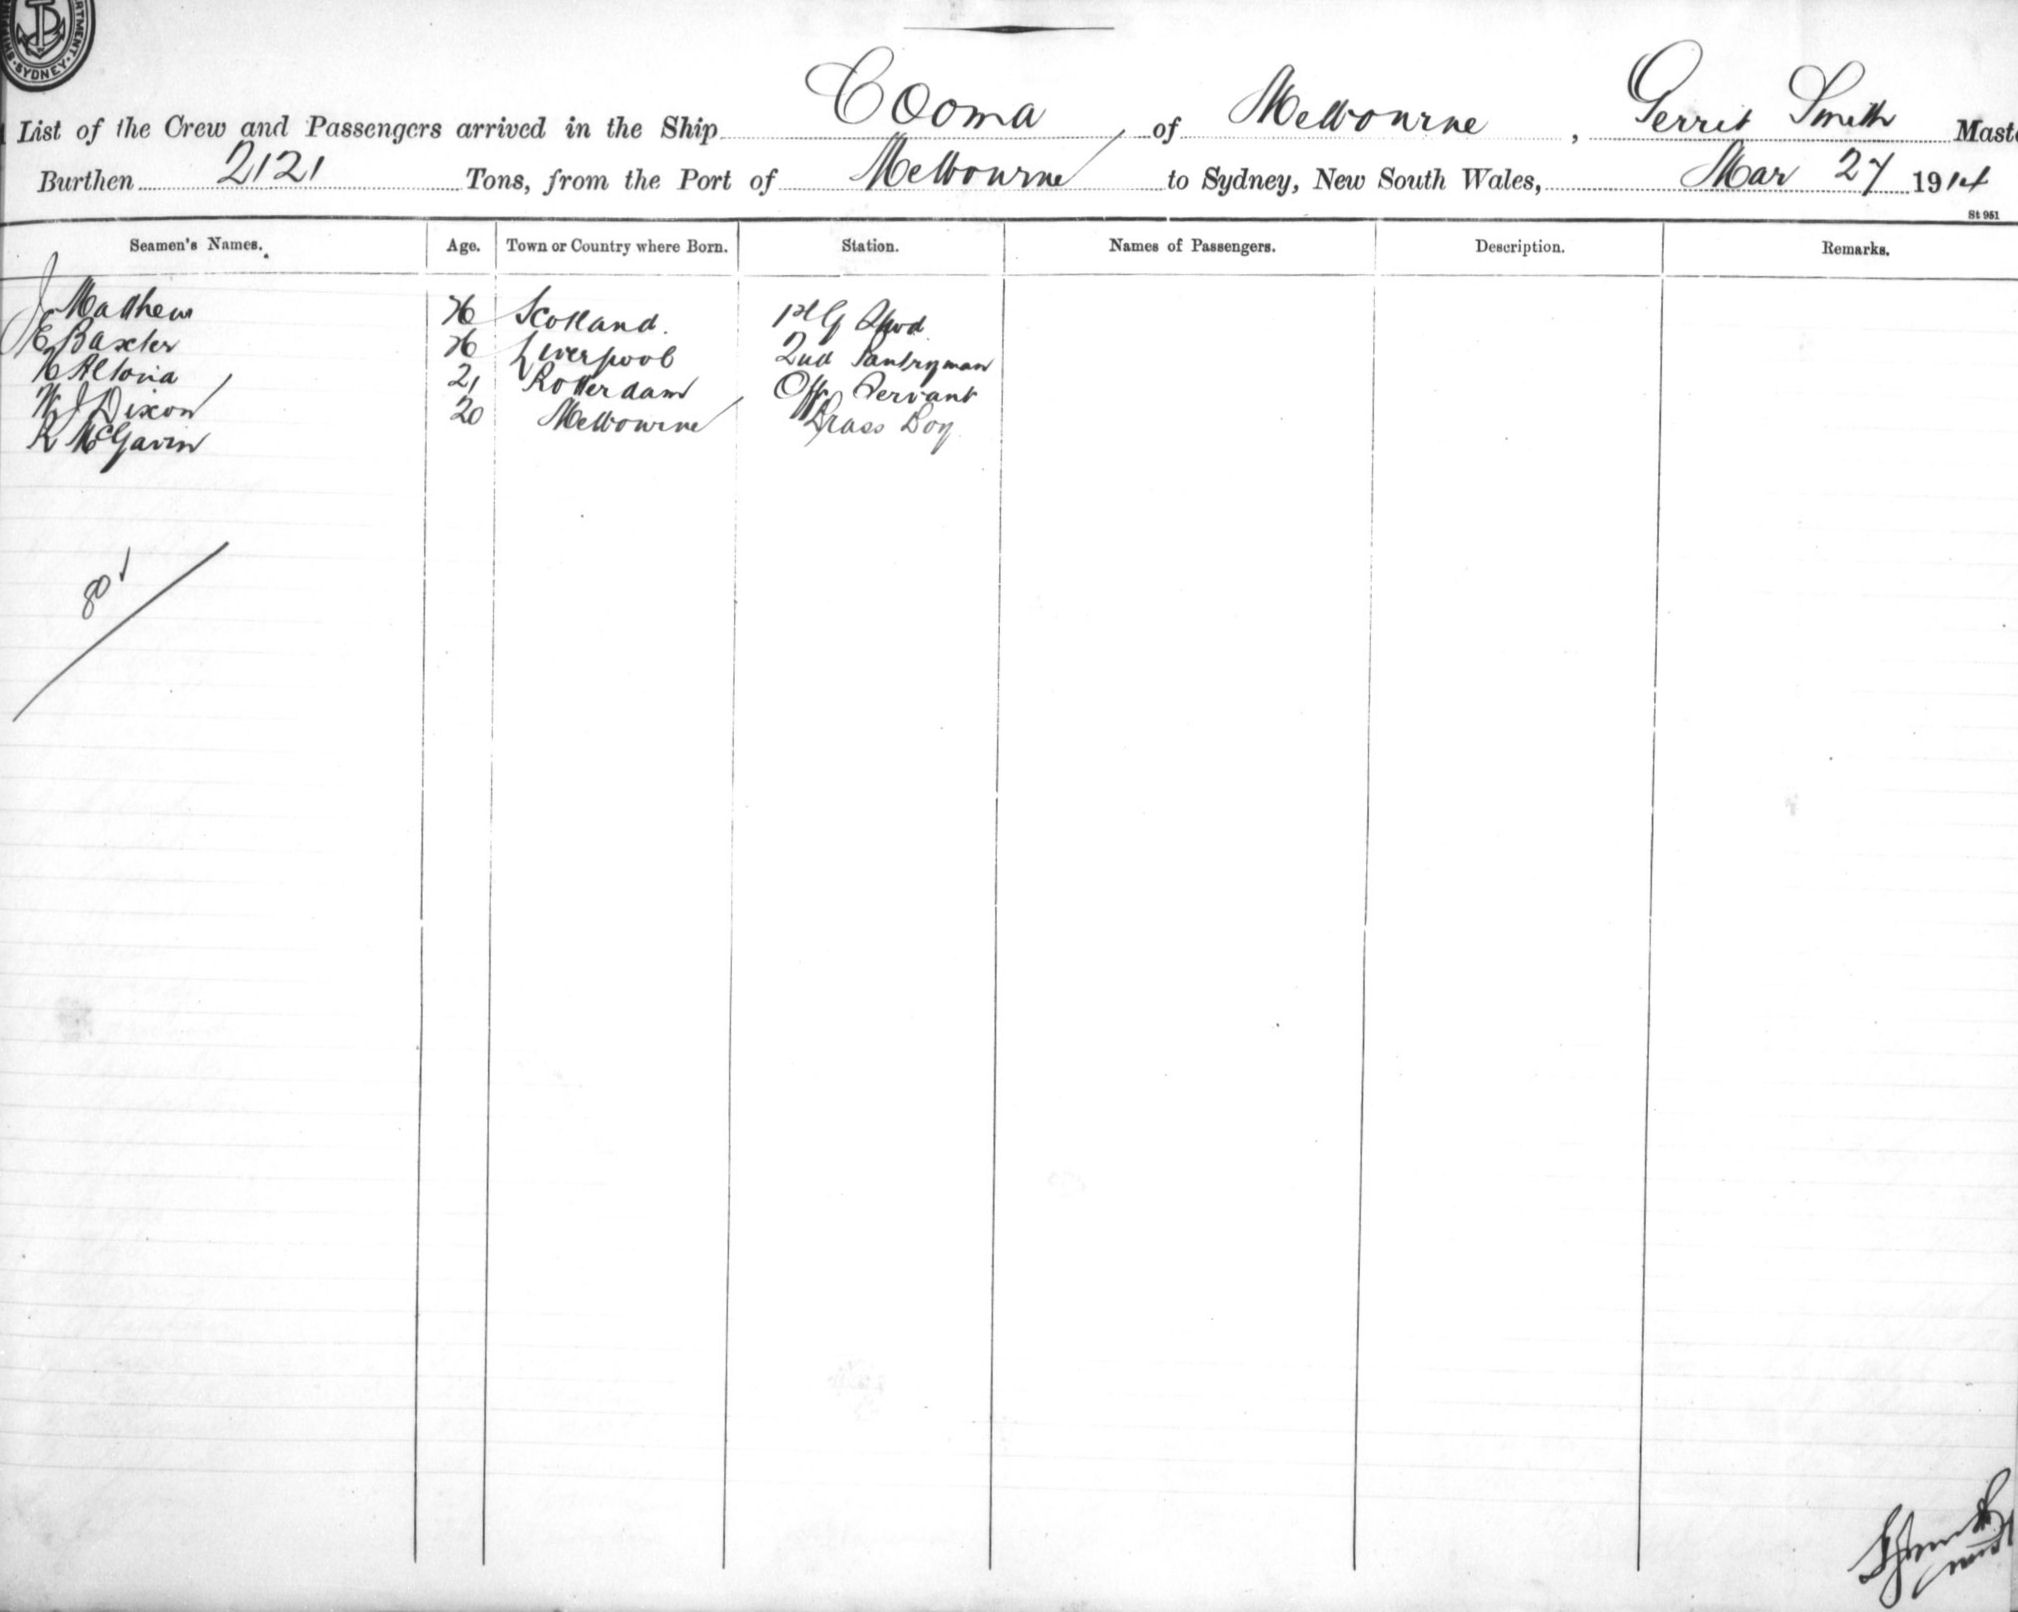 SYDNEY
List of the Crew and Passengers arrived in the Ship Cooma of Melbourne, Gerrit Smith Maste
Burthen 2121 Tons, from the Port of Melbourne to Sydney, New South Wales, Mar 27 1914
St 951
Seamen's Names. Age. Town or Country where Born. Station. Names of Passengers. Description. Remarks.
J Mathew 26 Scotland. 1st G Stwd
E Baxter 26 Liverpool 2nd Pantryman
Altona 21 Rotterdam Offrs Servant
W J Dixon 20 Melbourne Brass Boy
R McGavin
80